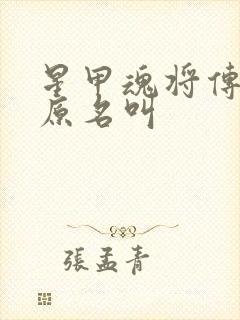 星甲魂将傳
原名叫
張孟青